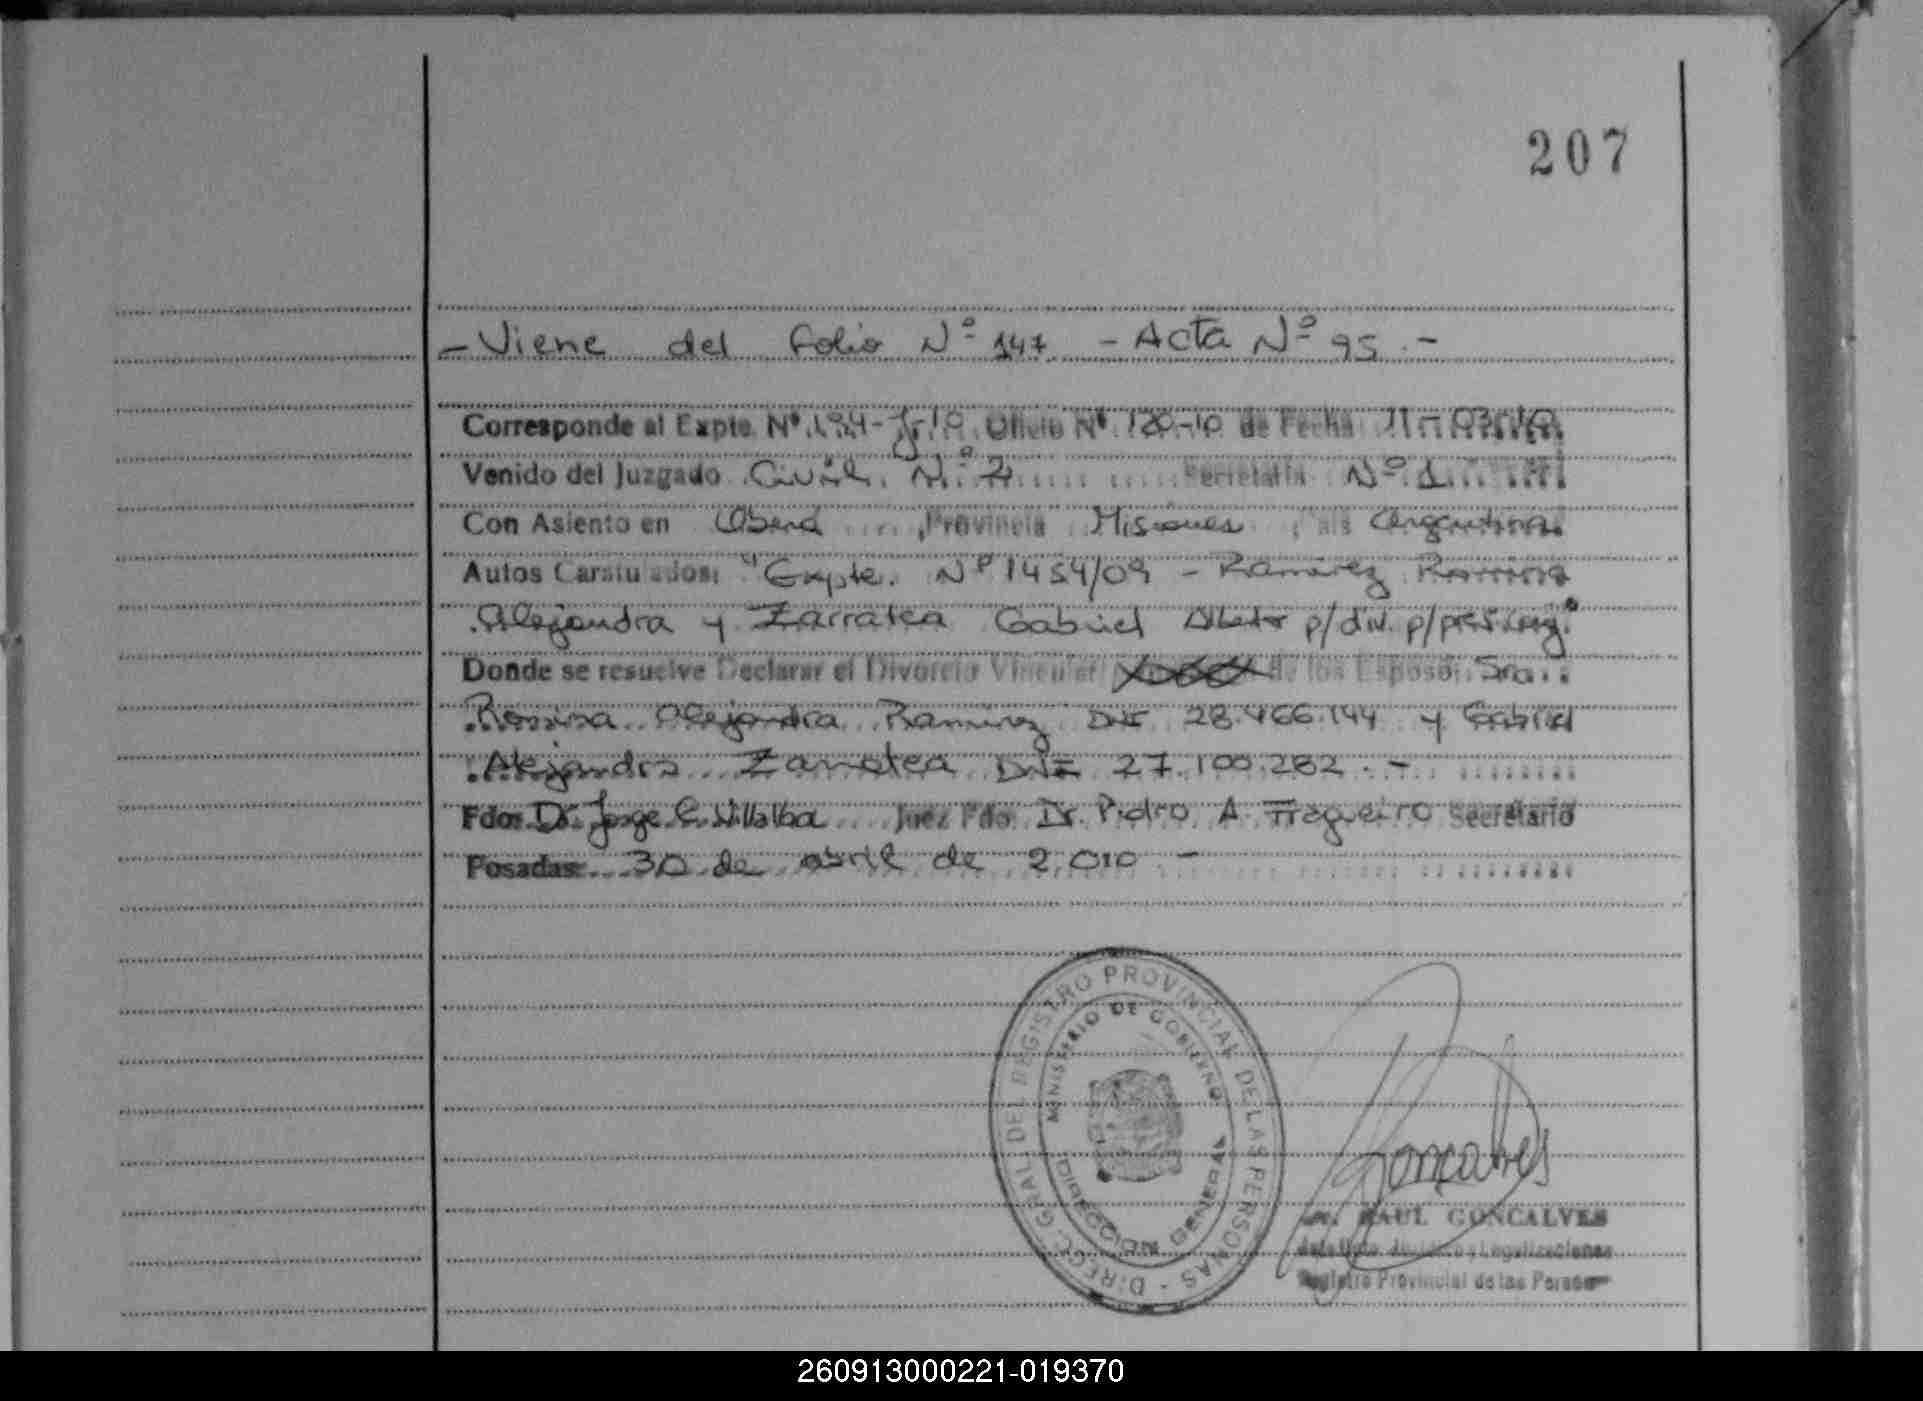 207
- Viene del folio Nº 147 - Acta Nº 95 . -
Corresponde al Expte. Nº 194-J-10 Oficio Nº 120-10 de Fecha 11-03-10
Venido del Juzgado Civil Nº 2 Secretaria Nº 1
Con Asiento en Oberá, Provincia Misiones, Pais Argentina
Autos Caratulados: "Expte. Nº 1454/09 - Ramirez Romina
Alejandra y Zarratea Gabriel Alberto p/div. p/pres.conj."
Donde se resuelve Declarar el Divorcio Vincular de los Esposos: Sra.
Alejandra Ramirez DNI 28.466.144 y Gabriel
Alejandro Zarratea DNI 27.100.282. -
Fdo: Dr. Jorge E. Villalba Juez Fdo: Dr. Pedro A. Fragueiro Secretario
Posadas: 30 de abril de 2.010. -
DIRECC. GRAL. DEL REGISTRO PROVINCIAL DE LAS PERSONAS -
MINISTERIO DE GOBIERNO
GENERAL
Goncalves
RAUL GONCALVES
y Legalizaciones
Registro Provincial de las Personas
260913000221-019370